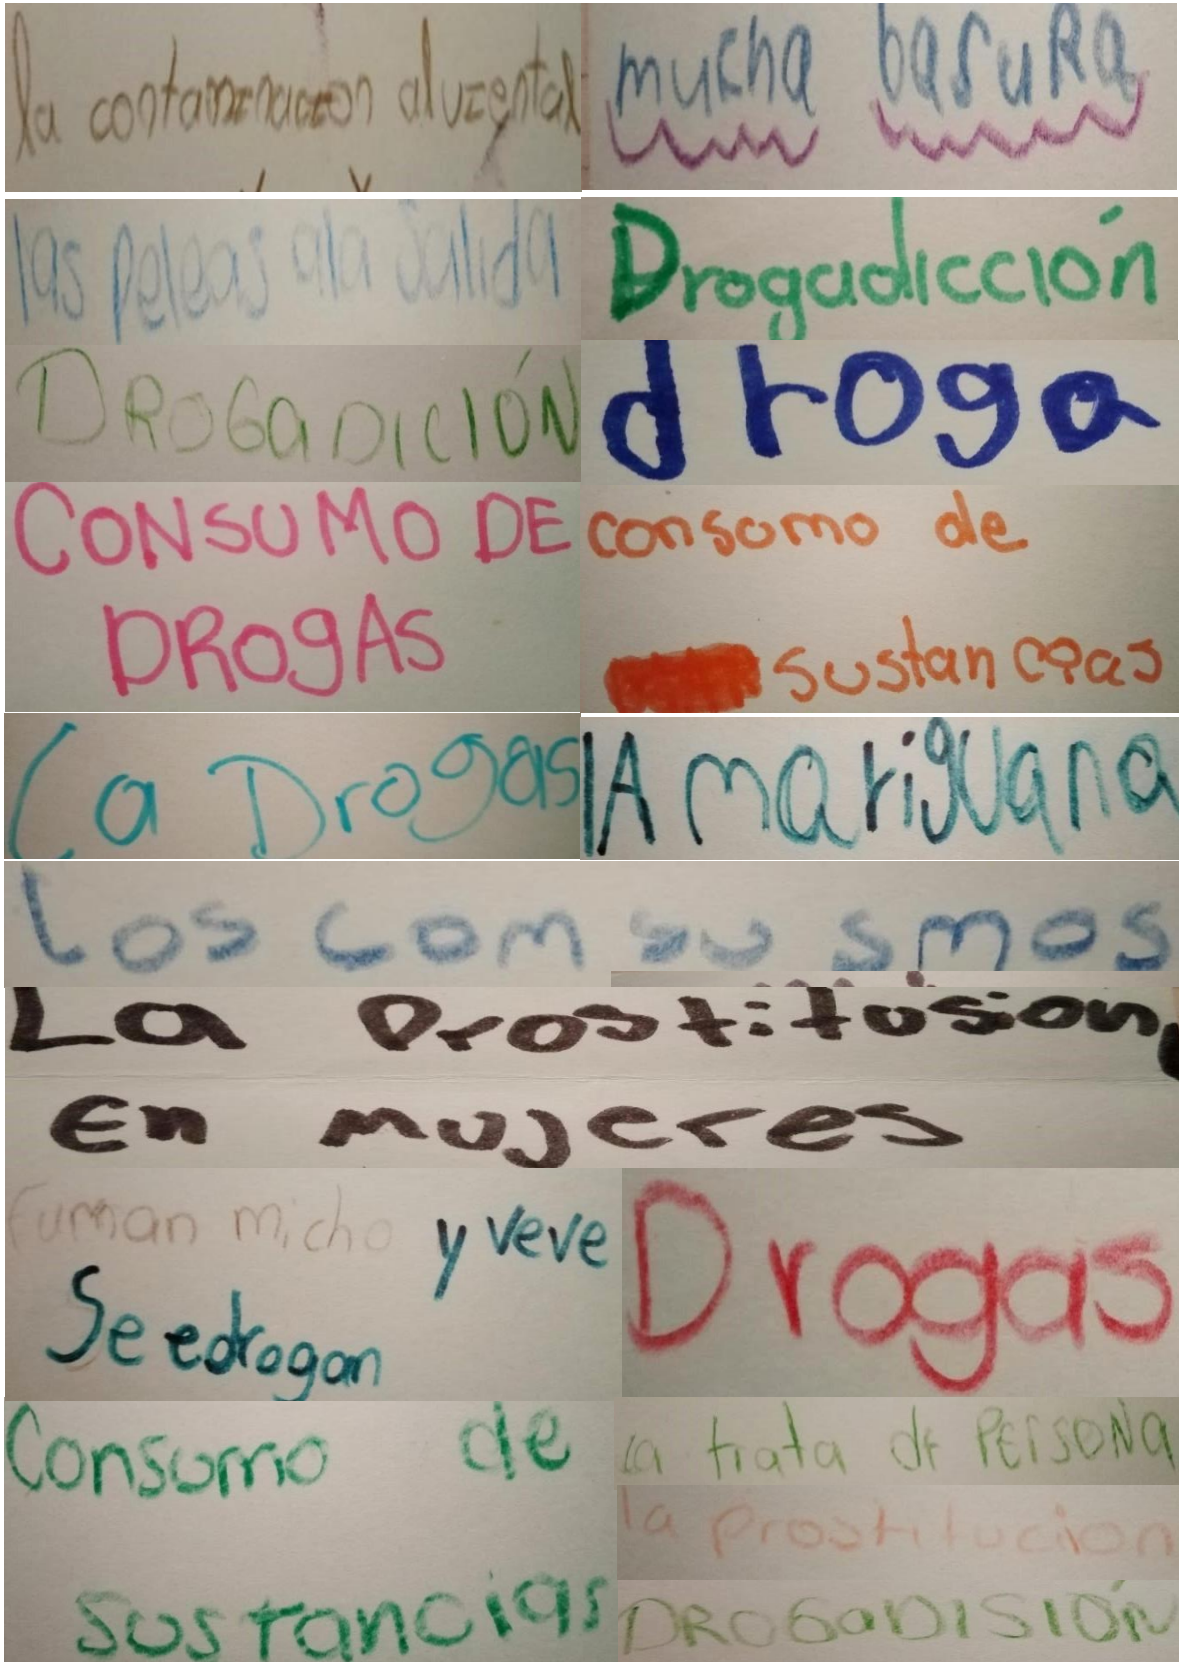 la contaminacion aluzental
mucha basura
las peleas ala salida
Drogadicción
DROGaDICIÓN
droga
CONSUMO DE
DROgAS
consomo de
sustancias
La Drogas
lA mariguana
Los com su smos
La Prostitusion
En mujeres
Fuman micho y veve
Se edrogan
Drogas
Consumo de
sustancias
la trata de PERSONA
la prostitucion
DROGaDISIÓN